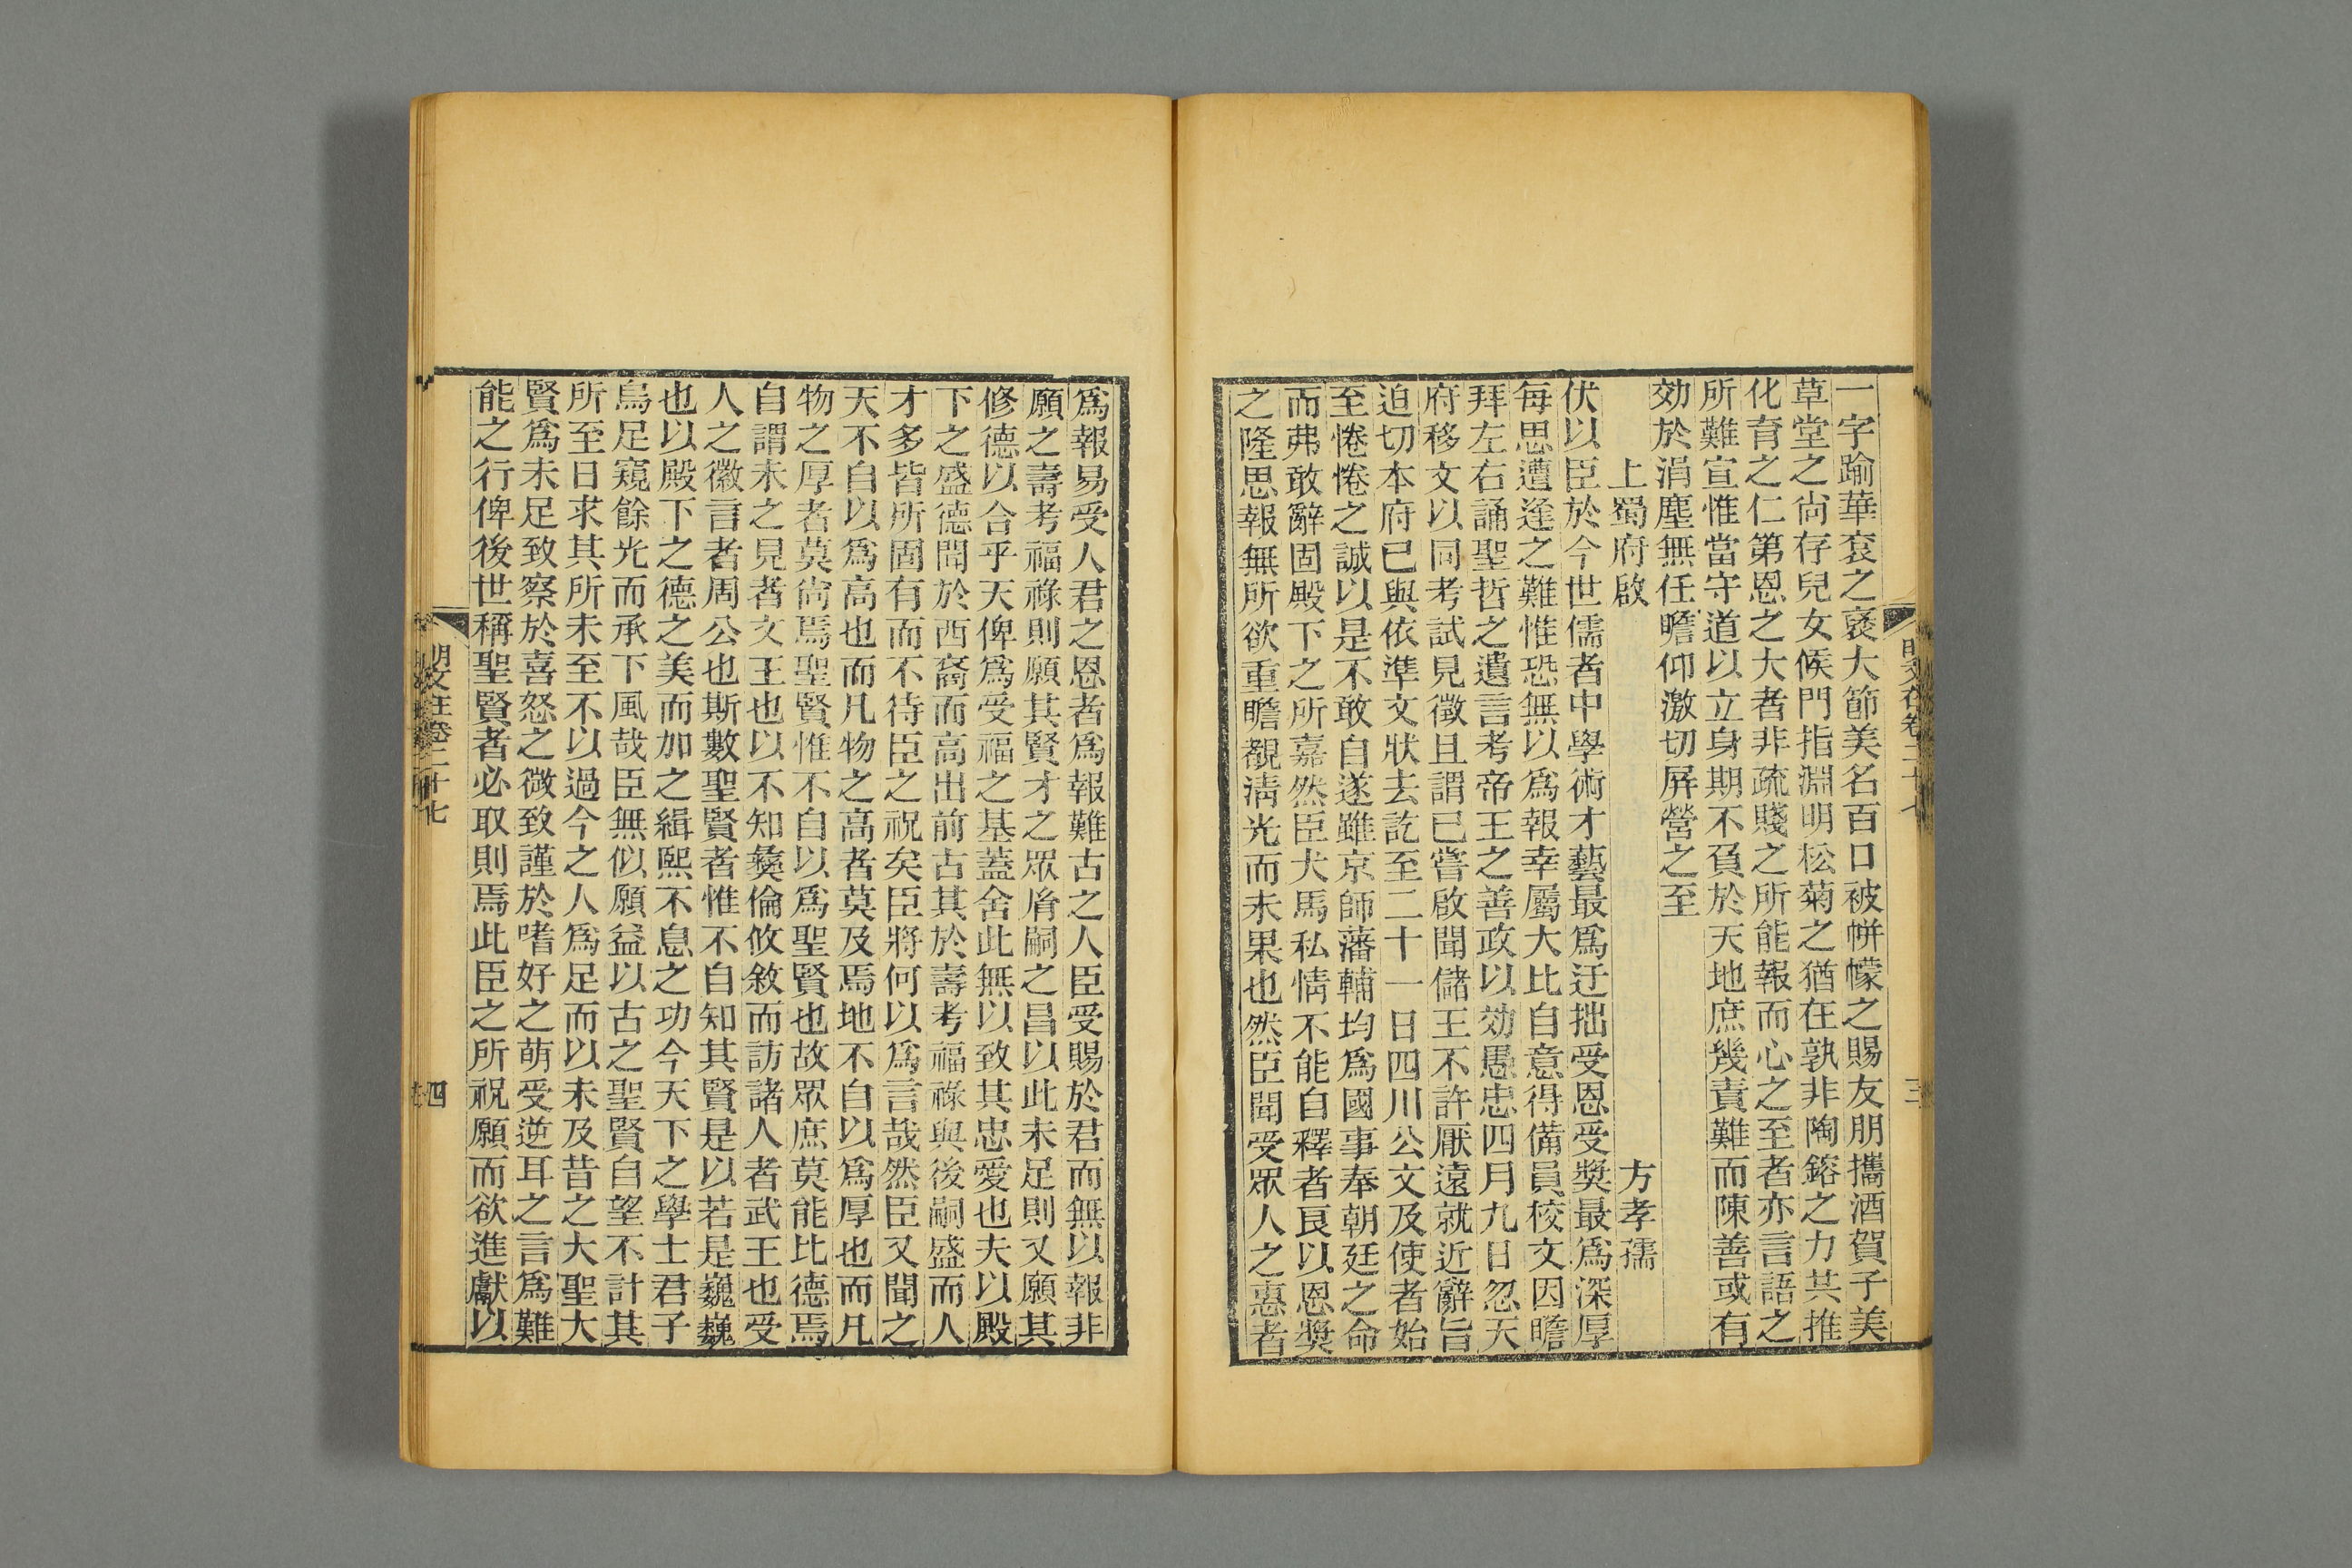 一字踰華袞之襃大節美名百口被帡幪之賜友朋攜酒賀子美
草堂之尙存兒女候門指淵明松菊之猶在孰非陶鎔之力共推
化育之仁第恩之大者非疏賤之所能報而心之至者亦言語之
所難宣惟當守道以立身期不負於天地庶幾責難而陳善或有
効於涓塵無任瞻仰激切屏營之至
上蜀府啟
方孝孺
伏以臣於今世儒者中學術才藝最爲迂拙受恩受奬最爲深厚
每思遭逢之難惟恐無以爲報幸屬大比自意得備員校文因瞻
拜左右誦聖哲之遺言考帝王之善政以効愚忠四月九日忽天
府移文以同考試見徵且謂已嘗啟聞儲王不許厭遠就近辭旨
迫切本府已與依準文狀去訖至二十一日四川公文及使者始
至惓惓之誠以是不敢自遂雖京師藩輔均爲國事奉朝廷之命
而弗敢辭固殿下之所嘉然臣犬馬私情不能自釋者良以恩奬
之隆思報無所欲重瞻覩淸光而未果也然臣聞受眾人之惠者
明文在卷二十七
三
爲報易受人君之恩者爲報難古之人臣受賜於君而無以報非
願之壽考福祿則願其賢才之眾胤嗣之昌以此未足則又願其
修德以合乎天俾爲受福之基蓋舍此無以致其忠愛也夫以殿
下之盛德聞於西裔而高出前古其於壽考福祿與後嗣盛而人
才多皆所固有而不待臣之祝矣臣將何以爲言哉然臣又聞之
天不自以爲高也而凡物之高者莫及焉地不自以爲厚也而凡
物之厚者莫尙焉聖賢惟不自以爲聖賢也故眾庶莫能比德焉
自謂未之見者文王也以不知彝倫攸敘而訪諸人者武王也受
人之徽言者周公也斯數聖賢者惟不自知其賢是以若是巍巍
也以殿下之德之美而加之緝熙不息之功今天下之學士君子
烏足窺餘光而承下風哉臣無似願益以古之聖賢自望不計其
所至日求其所未至不以過今之人爲足而以未及昔之大聖大
賢爲未足致察於喜怒之微致謹於嗜好之萌受逆耳之言爲難
能之行俾後世稱聖賢者必取則焉此臣之所祝願而欲進獻以
明文在卷二十七
四